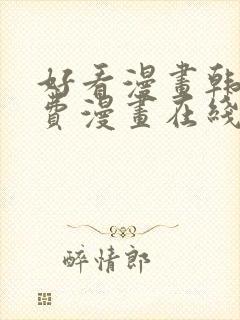 好看漫畫韩
費漫畫在线
醉情郎